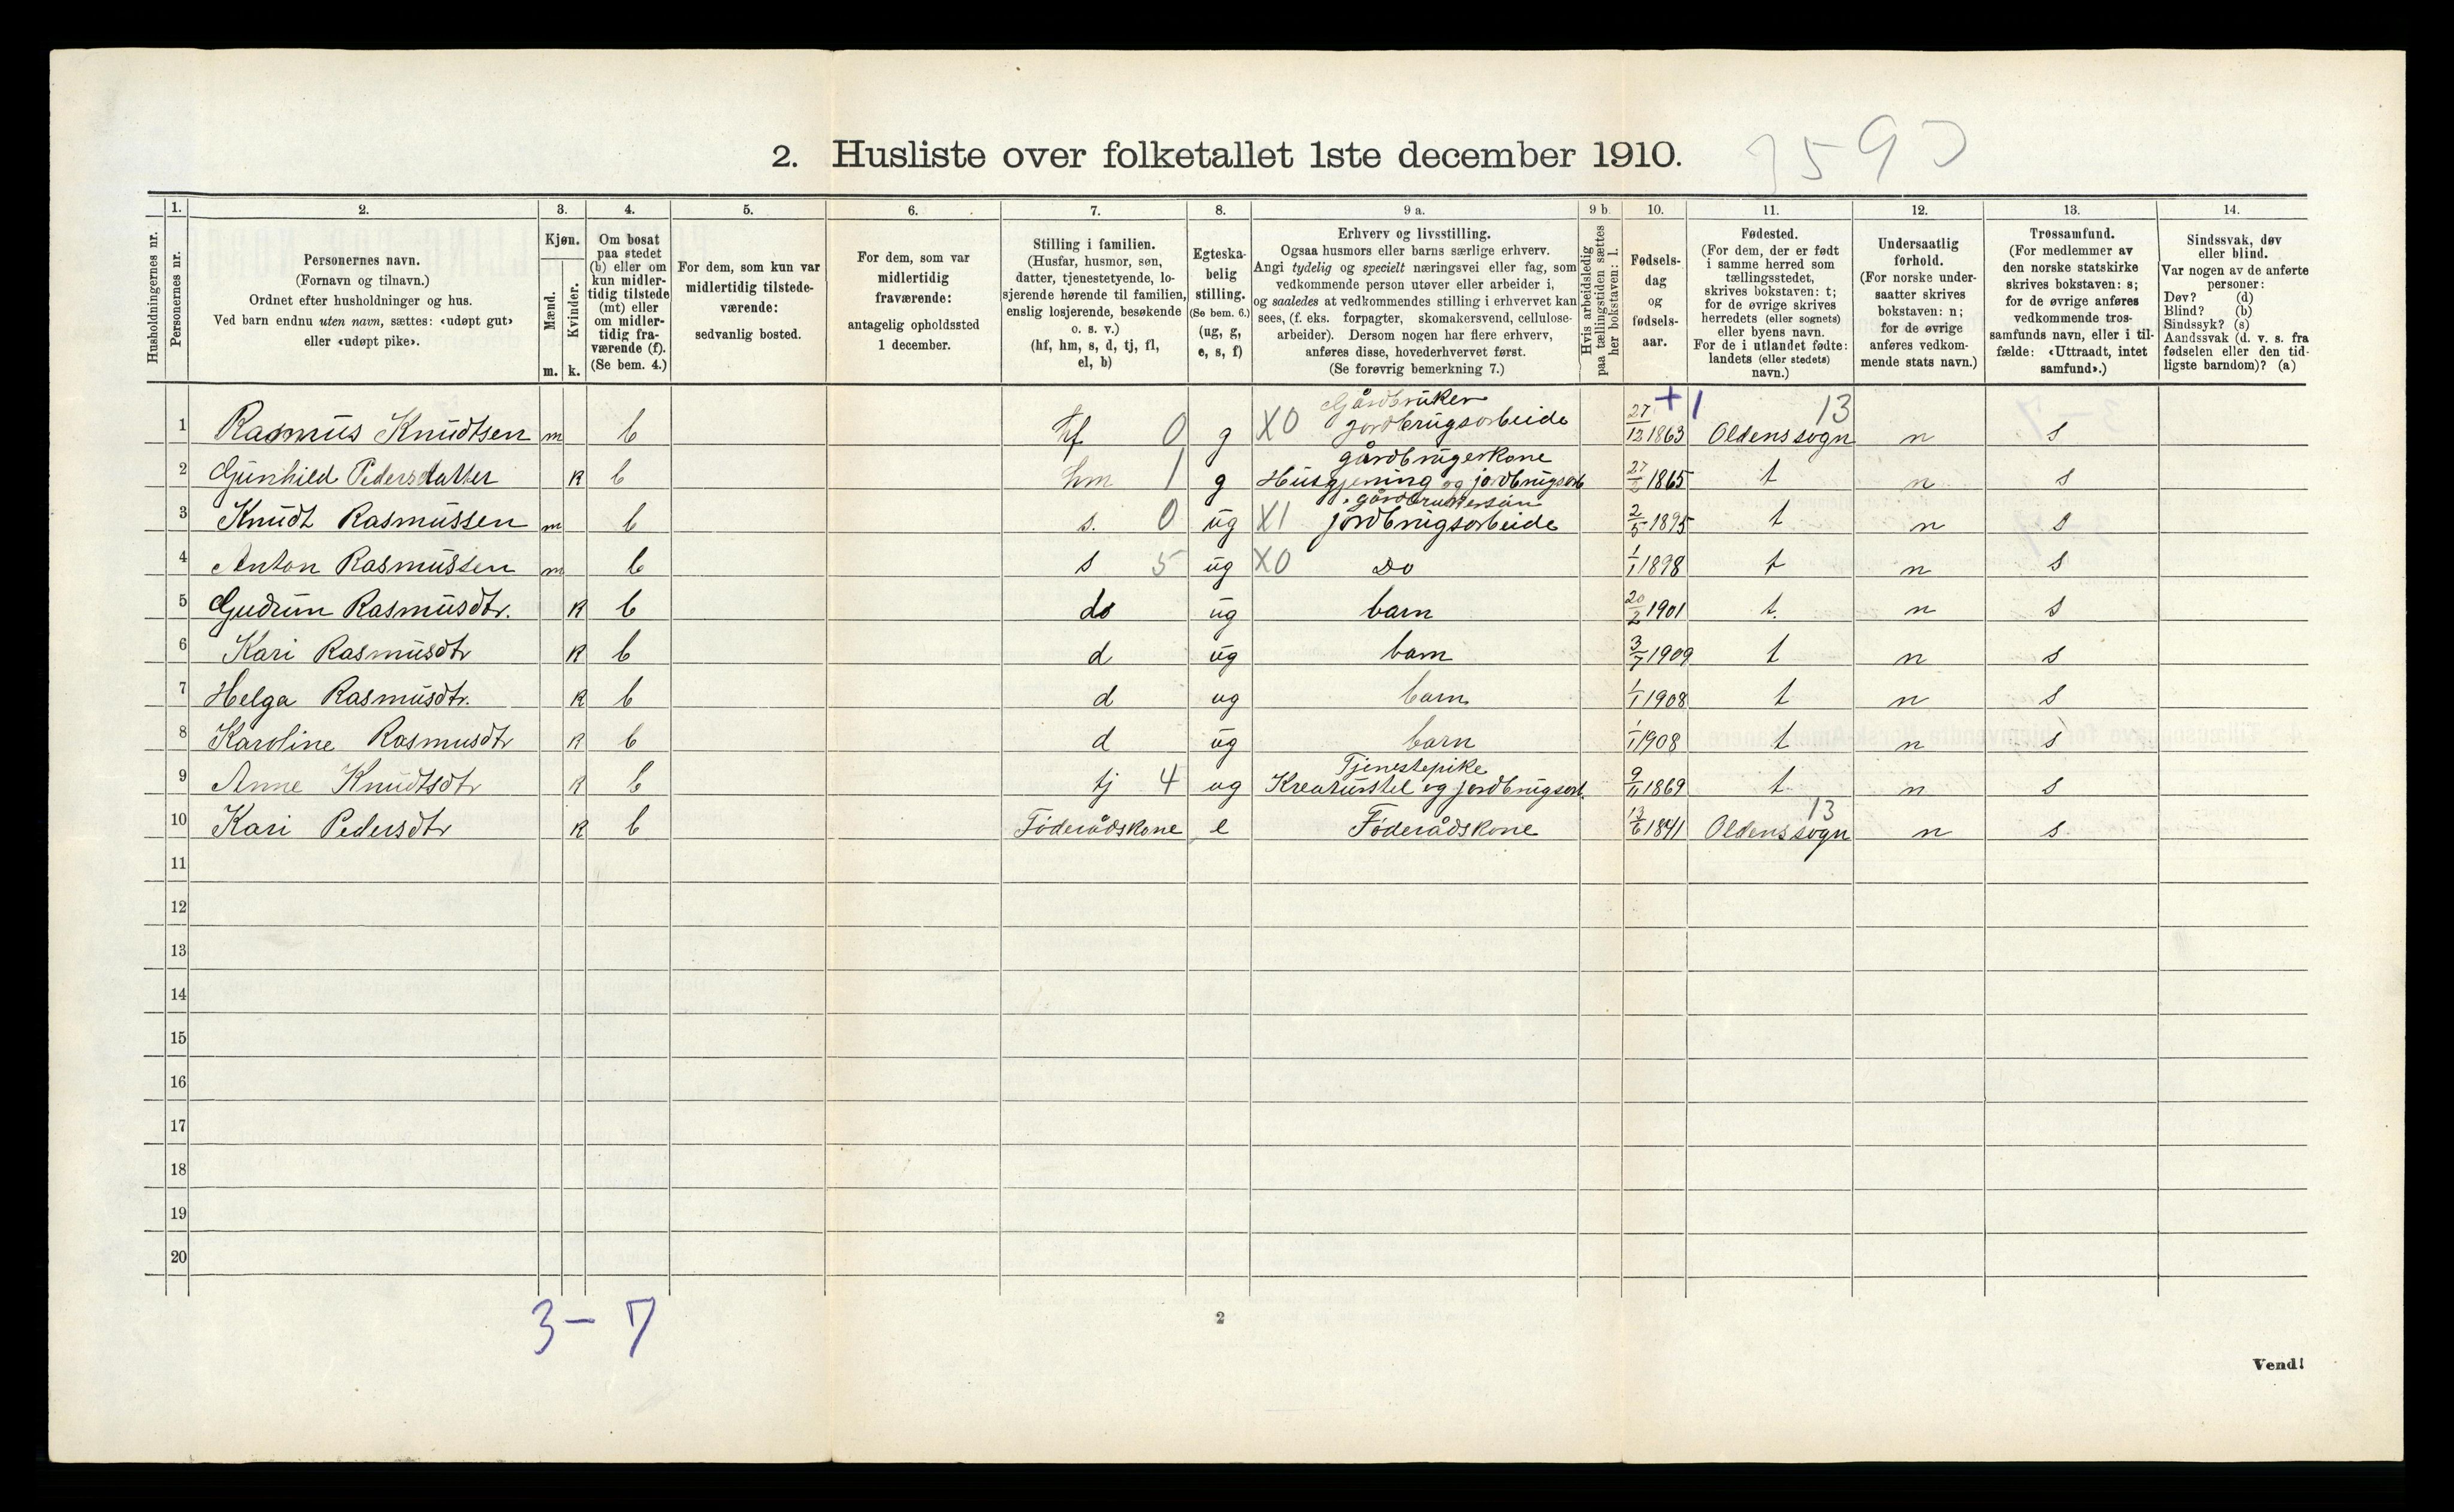 2. Husliste over folketallet 1ste december 1910.
Husholdningernes nr.
1. Personernes nr.
2. Personernes navn.
(Fornavn og tilnavn.)
Ordnet efter husholdninger og hus.
Ved barn endnu uten navn, sættes: «udøpt gut»
eller «udøpt pike».
3. Kjøn.
Mænd. m.
Kvinder. k.
4. Om bosat
paa stedet
(b) eller om
kun midler-
tidig tilstede
(mt) eller
om midler-
tidig fra-
værende (f).
(Se bem. 4.)
5. For dem, som kun var
midlertidig tilstede-
værende:
sedvanlig bosted.
6. For dem, som var
midlertidig
fraværende:
antagelig opholdssted
1 december.
7. Stilling i familien.
(Husfar, husmor, søn,
datter, tjenestetyende, lo-
sjerende hørende til familien,
enslig losjerende, besøkende
o. s. v.)
(hf, hm, s, d, tj, fl,
el, b)
8. Egteska-
belig
stilling.
(Se bem. 6.)
(ug, g,
e, s, f)
9 a. Erhverv og livsstilling.
Ogsaa husmors eller barns særlige erhverv.
Angi tydelig og specielt næringsvei eller fag, som
vedkommende person utøver eller arbeider i,
og saaledes at vedkommendes stilling i erhvervet kan
sees, (f. eks. forpagter, skomakersvend, cellulose-
arbeider). Dersom nogen har flere erhverv,
anføres disse, hovederhvervet først.
(Se forøvrig bemerkning 7.)
9 b. Hvis arbeidsledig
paa tællingstiden sættes
her bokstaven: l.
10. Fødsels-
dag
og
fødsels-
aar.
11. Fødested.
(For dem, der er født
i samme herred som
tællingsstedet,
skrives bokstaven: t;
for de øvrige skrives
herredets (eller sognets)
eller byens navn.
For de i utlandet fødte:
landets (eller stedets)
navn.)
12. Undersaatlig
forhold.
(For norske under-
saatter skrives
bokstaven: n;
for de øvrige
anføres vedkom-
mende stats navn.)
13. Trossamfund.
(For medlemmer av
den norske statskirke
skrives bokstaven: s;
for de øvrige anføres
vedkommende tros-
samfunds navn, eller i til-
fælde: «Uttraadt, intet
samfund».)
14. Sindssvak, døv
eller blind.
Var nogen av de anførte
personer:
Døv? (d)
Blind? (b)
Sindssyk? (s)
Aandssvak (d. v. s. fra
fødselen eller den tid-
ligste barndom)? (a)
+1 13
Gårdbruker
1 Rasmus Knudtsen m b hf 0 g X0 jordbrugsarbeide 27/12 1863 Oldens sogn n s
gårdbrugerkone
2 Gunhild Pedersdatter k b hm 1 g Husgjerning og jordbrugsarb 27/2 1865 t n s
gårdbrukersøn
3 Knudt Rasmussen m b s. 0 ug X1 jordbrugsarbeide 2/5 1895 t n s
4 Anton Rasmussen m b s 5 ug X0 Do 1/1 1898 t n s
5 Gudrun Rasmusdtr. k b do ug barn 20/2 1901 t. n s
6 Kari Rasmusdtr k b d ug barn 3/7 1909 t n s
7 Helga Rasmusdtr. k b d ug barn 1/1 1908 t n s
8 Karoline Rasmusdtr k b d ug barn 1/1 1908 t n s
Tjenestepike
9 Anne Knudtsdtr k b tj 4 ug Kreaturstel og jordbrugsarb. 9/11 1869 t n s
13
10 Kari Pedersdtr k b Föderådskone e Föderådskone 13/6 1841 Oldens sogn n s
11
12
13
14
15
16
17
18
19
20
3 - 7
2
Vend!